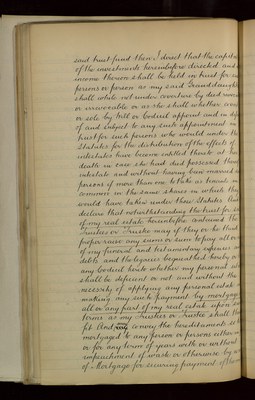 said trust fund then I direct that the capital
of the investments hereinbefore directed and
income thereon shall be held in trust for su
person or persons as my said Granddaught
shall while not under coverture by deed revoc
or irrevocable or as she shall whether cover
or sole by Will or Codicil appoint and in def
of and subject to any such appointment in
trust for such persons who would under the
Statutes for the distribution of the effects of
intestates have become entitled thereto at her
death in case she had died possessed there
intestate and without having been married su
persons if more than one to take as tenants in
common in the same shares in which they
would have taken under those Statutes And
declare that notwithstanding the trust for sa
of my real estate hereinbefore contained the
Trustees or Trustee may if they or he think
proper raise any sum or sums to pay all or
of my funeral and testamentary expenses a
debts and the legacies bequeathed hereby or
any codicil hereto whether my personal es
shall be deficient or not and without the
necessity of applying any personal estate
making any such payment by mortgage
all or any part of my real estate upon su
terms as my Trustees or Trustee shall thi
fit And may convey the hereditaments so
mortgaged to any person or persons either in
or for any term of years with or without
impeachment of waste or otherwise by w
of Mortgage for securing payment of the m